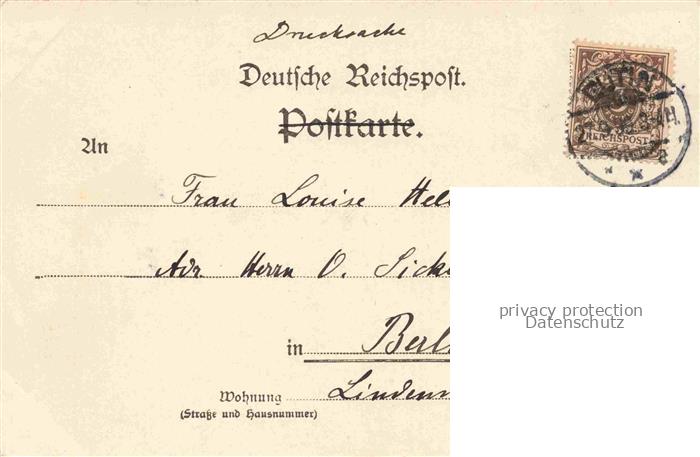 Drucksache
Deutsche Reichspost.
Postkarte.
EUTIN
REICHSPOST
An
Frau Louise
Adr Herrn O.
in
Wohnung
(Straße und Hausnummer)
privacy protection
Datenschutz